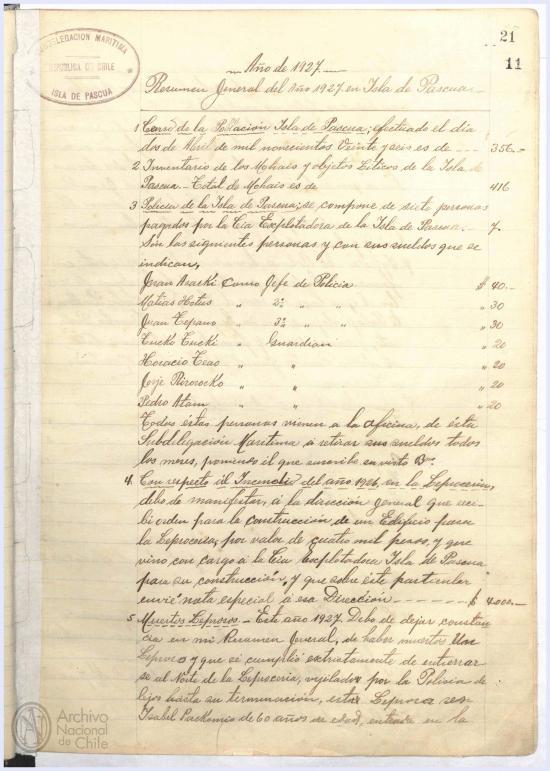 21
11
SUBDELEGACION MARITIMA
REPUBLICA DE CHILE
ISLA DE PASCUA
Año de 1927.
Resumen General del Año 1927 en Isla de Pascua
1 Censo de la Población Isla de Pascua; efectuado el día
dos de Abril de mil novecientos Veinte y seis es de 356.-
2 Inventario de los Mohais y objetos Liticos de la Isla de
Pascua. - Total de Mohais es de 416
3 Policia de la Isla de Pascua; se compone de siete personas
pagados por la Cía Explotadora de la Isla de Pascua. 7.
Son las siguientes personas y con sus sueldos que se
indican,
Juan Araki como Jefe de Policia $ 40.-
Matias Hotus " 2º " " " 30
Juan Tepano " 3º " " " 30
Tucko Tucki " Guardian " 20
Horacio Teao " " " 20
Jorje Riroroko " " " 20
Pedro Atam " " " 20
Todos éstas personas vienen a la oficina, de ésta
Subdelegación Maritima a retirar sus sueldos todos
los meses, poniendo el que suscribe su visto Bº.
4. Con respecto il Incendio del año 1926, en la Leproceria,
debo de manifestar, á la dirección general que reci-
bi orden para la construcción de un Edificio para
la Leproceria, por valor de cuatro mil pesos, y que
vino con cargo á la Cia Explotadora Isla de Pascua
para su construcción, y que sobre éste particular
envié nota especial á esa Dirección $ 4.000.-
5 Muertos Leprosos - Este año 1927. Debo de dejar constan
cia en mi Resumen General, de haber muertos Un
Leproso y que se cumplió extrictamente de enterrar
se al Norte de la Leproceria, vejilados por la Policia de
lejos hasta su terminación, esta Leprosa
Isabel Packomio de 60 años de edad, entrada en la
Archivo
Nacional
de Chile